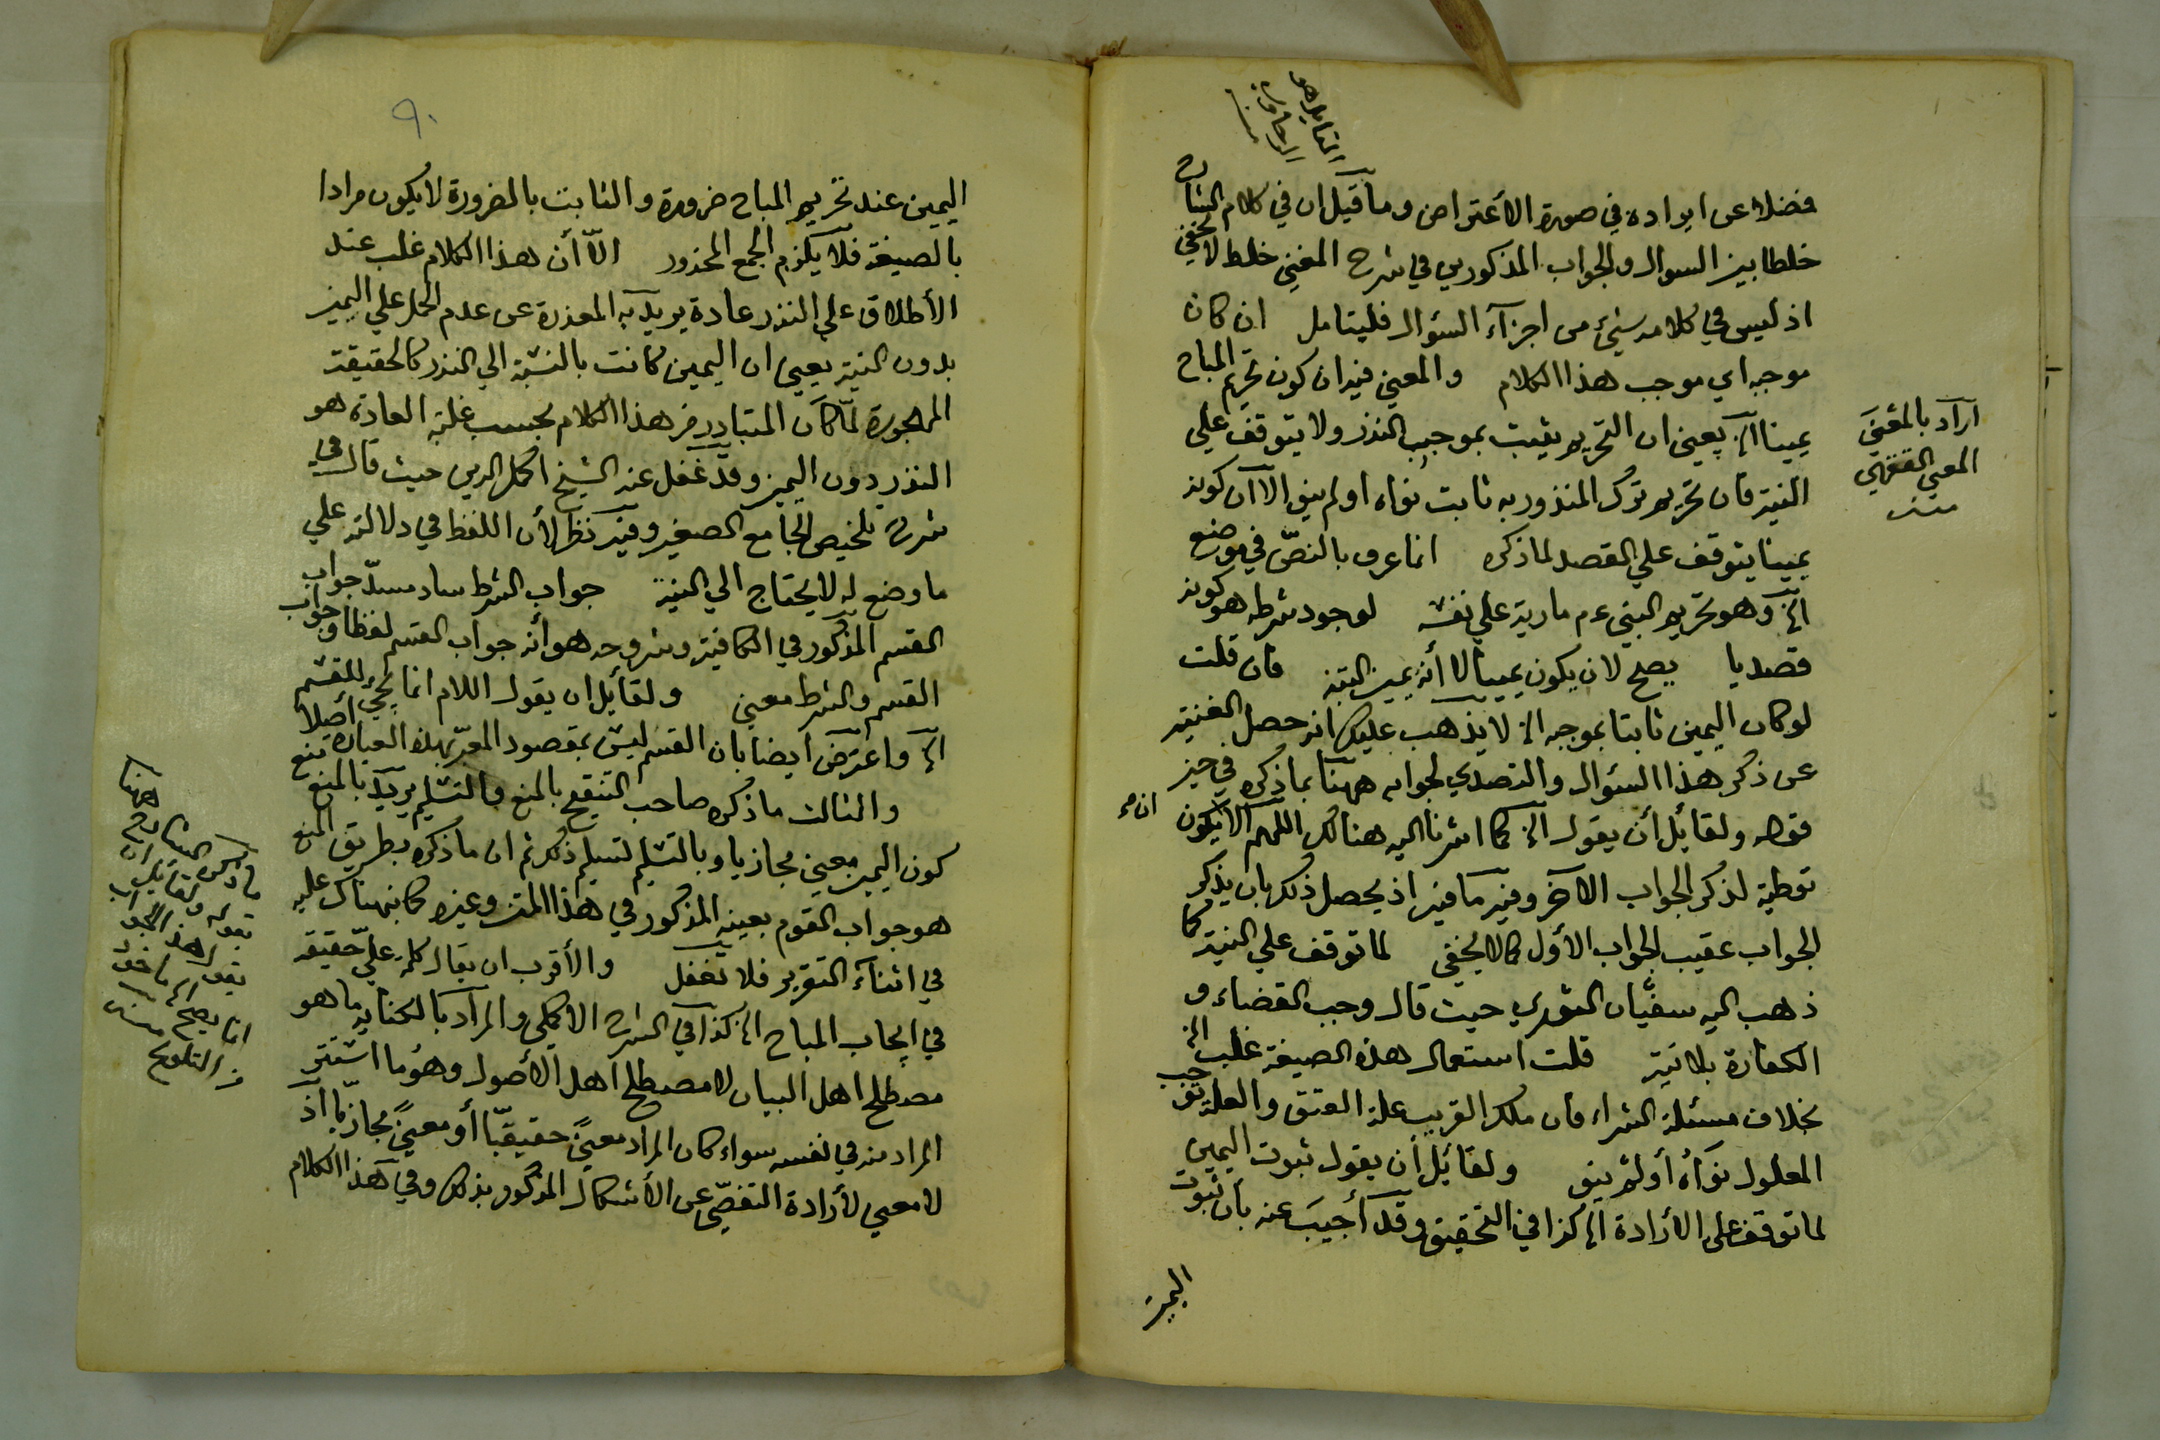 القايل هو
الرهاوي
منه
فضلا عن ايراده في صورة الأعتراض وما قيل ان في كلام الشارح
خلطا بين السوال والجواب المذكورين في شرح المغني خلط لا يخفي
اذ ليس في كلامه شيئ من اجزآء السئوال فليتامل ان كان
موجبه اي موجب هذا الكلام والمعني فيه ان كون تحريم المباح
يمينا الخ يعني ان التحريم يثبت بموجب النذر ولا يتوقف علي
النية فان تحريم ترك المنذور به ثابت نواه او لم ينو الا ان كونه
يمينا يتوقف علي القصد لما ذكره انما عرف بالنصّ في موضع
الخ وهو تحريم النبي عم مارية علي نفسه لوجود شرطه هو كونه
قصديا يصح لان يكون يمينا لا أنه يمين البتة فان قلت
لو كان اليمين ثابتا بموجبه الخ لا يذهب عليك انه حصل الغنية
عن ذكر هذا السئوال والتصدي لجوابه ههنا بما ذكره في حيز
قوله ولقائل أن يقول الخ كما اشرنا اليه هنالك اللهم الا ان يكون
توطية لذكر الجواب الآخر وفيه ما فيه اذ يحصل ذلك بان يذكر
الجواب عقيب الجواب الأول كما لا يخفي لما توقف علي النية كما
ذهب اليه سفيان الثوري حيث قال وجب القضاء و
الكفارة بلا نية قلت استعمال هذه الصيغة غلب الخ
بخلاف مسئلة الشراء فان ملك القريب علة العتق والعلة توجب
المعلول نواه أو لم ينو ولقائل أن يقول ثبوت اليمين
لما توقف علي الأرادة الخ كذا في التحقيق وقد أجيب عنه بان ثبوت
اليمين
أراد بالمعني
المعني الفقهي
منه
٩٠
اليمين عند تحريم المباح ضرورة والثابت بالضرورة لا يكون مرادا
بالصيغة فلا يلزم الجمع المحذور الاّ أن هذا الكلام غلب عند
الأطلاق علي النذر عادة يريد به المعذرة عن عدم الحمل علي اليمين
بدون النية يعني ان اليمين كانت بالنسبة الي النذر كالحقيقة
المهجورة لمّا كان المتبادر من هذا الكلام بحسب غلبة العادة هو
النذر دون اليمين وقد غفل عنه الشيخ اكمل الدين حيث قال في
شرح تلخيص الجامع الصغير وفيه نظر لأن اللفظ في دلالته علي
ما وضع له لا يحتاج الي النية جواب الشرط ساد مسدّ جواب
القسم المذكور في الكافية وشروحه هو أنه جواب القسم لفظا وجواب
القسم والشرط معني ولقائل ان يقول اللام انما تجيئ للقسم
الخ واعترض ايضا بان القسم ليس بمقصود المعبّر بهذه العبارة أصلا
والثالث ما ذكره صاحب التنقيح بالمنع والتسليم يريد بالمنع منع
كون اليمين معني مجازيا وبالتسليم تسليم ذلك ثم ان ما ذكره بطريق المنع
هو جواب القوم بعينه المذكور في هذا المتن وغيره كما نبهناك عليه
في اثناء التقرير فلا تغفل والأقرب ان يقال كلمة عليّ حقيقة
في ايجاب المباح الخ كذا في الشرح الاكملي والمراد بالكناية ما هو
مصطلح اهل البيان لا مصطلح اهل الأصول وهو ما استتر
المراد منه في نفسه سواء كان المراد معنيً حقيقيّا أو معنيً مجازيّا اذ
لا معني لأرادة التفصّي عن الأشكال المذكور بذلك وفي هذا الكلام
ما ذكره الشارح ههنا
بقوله ولقايل ان
يقول هذا الجواب
انما يصح الخ ماخوذ
من التلويح منه